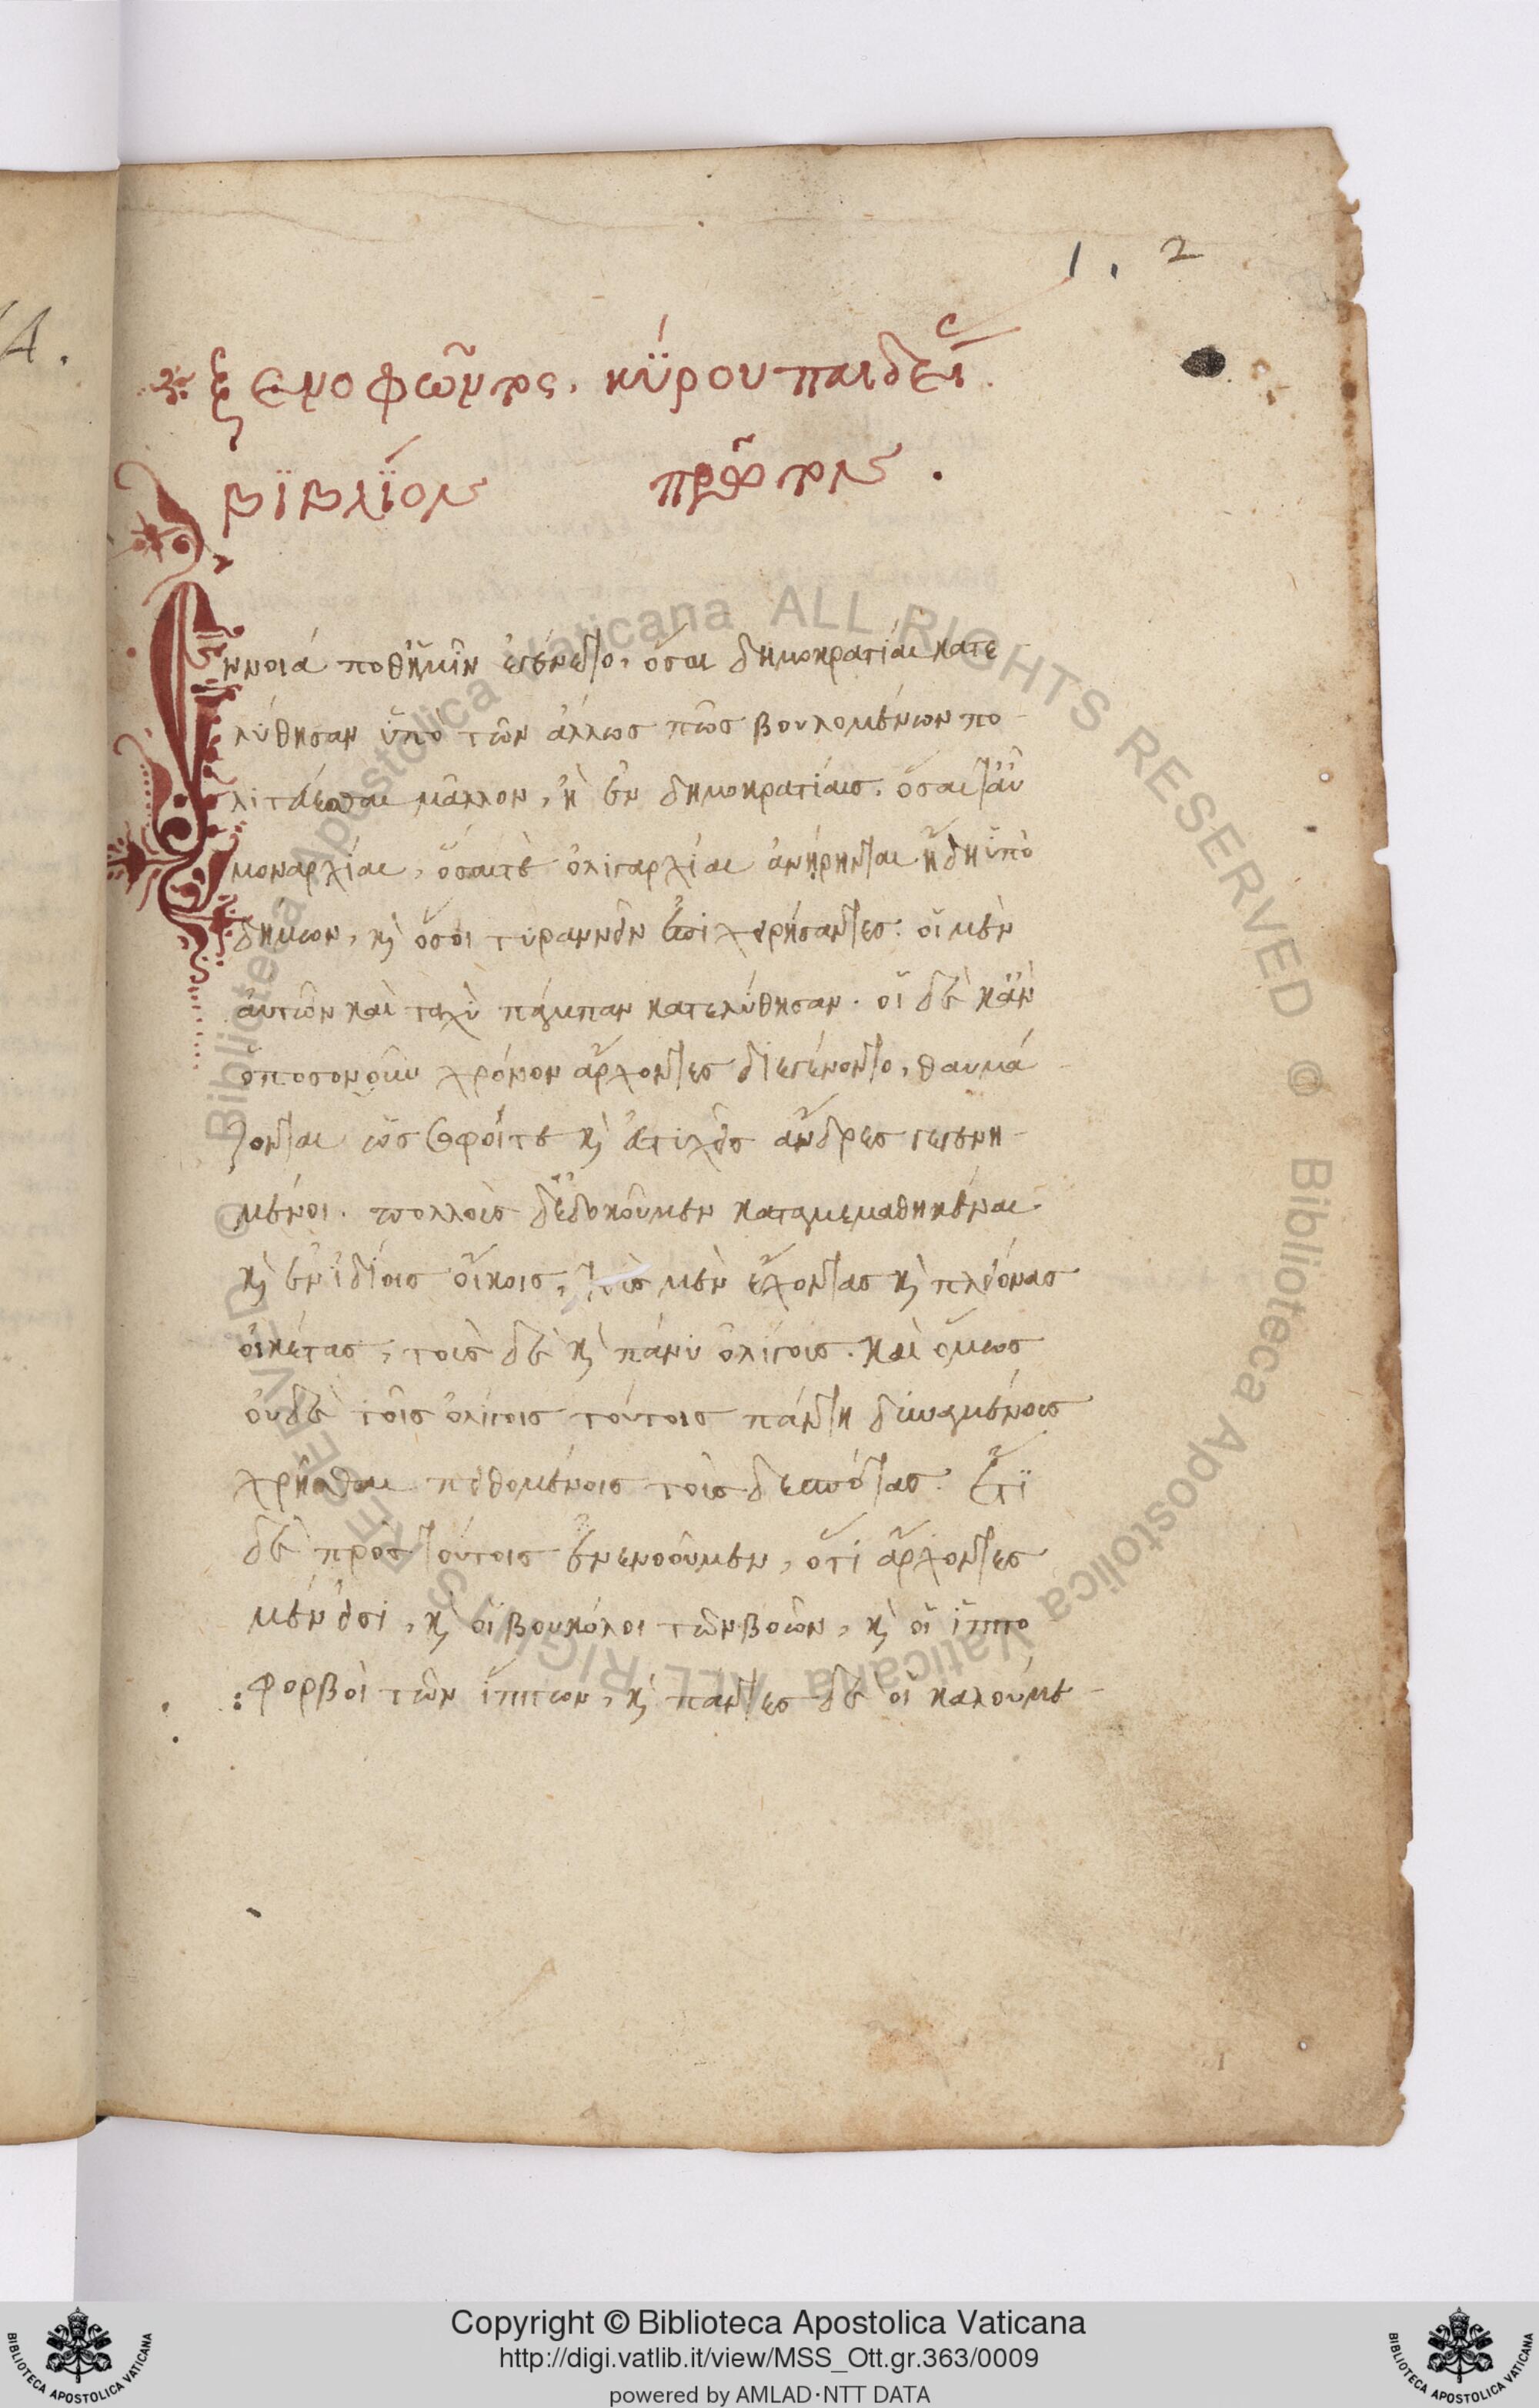 1 . 2
4.
ξενοφῶντος. κύρου παιδεί
βϊβλϊον πρῶτον .
ἔννοιά ποθ ἡμῖν ἐγένετο, ὅσαι δημοκρατίαι κατε
λύθησαν ὑπὸ τῶν ἄλλως πῶς βουλομένων πο
λιτεύεσθαι μᾶλλον, ἢ ἐν δημοκρατίαις. ὅσαι τ' αὖ
μοναρχίαι, ὅσαι τὲ ὀλιγαρχίαι ἀνήρηνται ἤδη ὑπὸ
δήμων, κὶ ὅσοι τυραννεῖν ἐπιχειρήσαντες. οἱ μὲν
ἀυτῶν καὶ ταχὺ πάμπαν κατελύθησαν. οἱ δὲ κἂν
ὁποσονοῦν χρόνον ἄρχοντες διεγένοντο, θαυμά
ζονται ὡς σοφοίτε κὶ ἐυτυχεῖς ἄνδρες γεγενη
μένοι. πολλοὺς δ' ἐδοκοῦμεν καταμεμαθηκέναι
κὶ ἐν ἰδίοις οἴκοις, τοὺς μὲν ἔχοντας κὶ πλείονας
οἰκέτας, τοὺς δὲ κὶ πάνυ ὀλίγους. καὶ ὅμως
ὀυδὲ τοῖς ὀλίγοις τούτοις πάντη δυναμένους
χρῆσθαι πειθομένοις τοὺς δεσπότας. ἔτϊ
δὲ πρὸς τούτοις ἐνενοοῦμεν, ὅτι ἄρχοντες
μέν εἰσι, κὶ οἱ βουκόλοι τῶν βοῶν, κὶ οἱ ἱππο
φορβοὶ τῶν ἵππων, κὶ πάντες δὲ οἱ καλούμε
Copyright © Biblioteca Apostolica Vaticana
http://digi.vatlib.it/view/MSS_Ott.gr.363/0009
powered by AMLAD·NTT DATA
BIBLIOTECA APOSTOLICA VATICANA
BIBLIOTECA APOSTOLICA VATICANA
© Biblioteca Apostolica Vaticana ALL RIGHTS RESERVED © Biblioteca Apostolica Vaticana ALL RIGHTS RESERVED